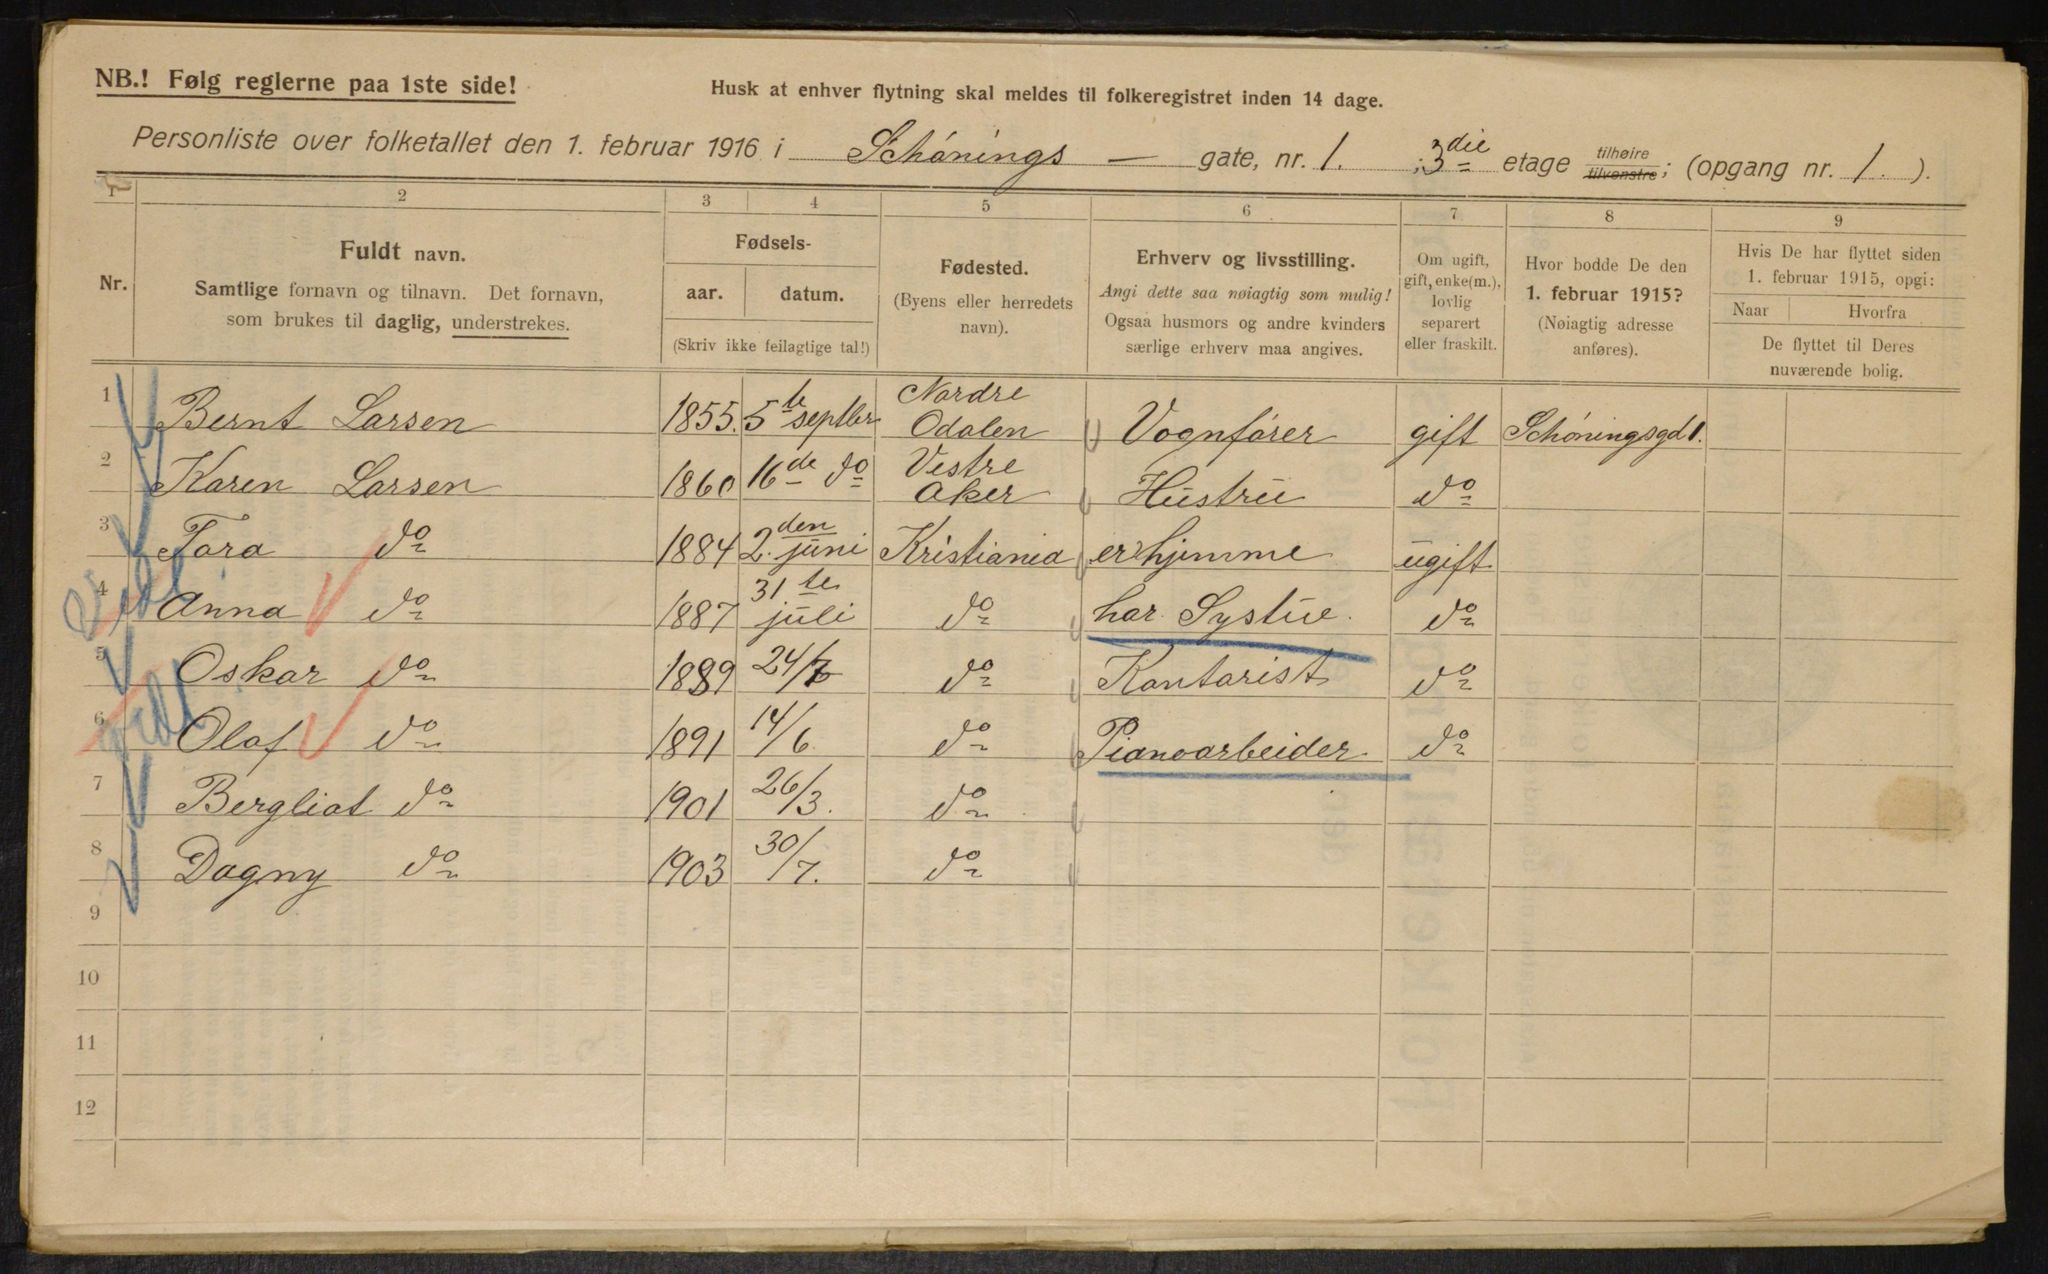 NB.! Følg reglerne paa 1ste side!
Husk at enhver flytning skal meldes til folkeregistret inden 14 dage.
Personliste over folketallet den 1. februar 1916 i Schönings — gate, nr. 1. ; 3die etage tilhøire tilvenstre; (opgang nr. 1. ).
1 2 3 4 5 6 7 8 9
Nr.
Fuldt navn.
Samtlige fornavn og tilnavn. Det fornavn,
som brukes til daglig, understrekes.
Fødsels-
aar. datum.
(Skriv ikke feilagtige tal!)
Fødested.
(Byens eller herredets
navn).
Erhverv og livsstilling.
Angi dette saa nøiagtig som mulig!
Ogsaa husmors og andre kvinders
særlige erhverv maa angives.
Om ugift,
gift, enke(m.),
lovlig
separert
eller fraskilt.
Hvor bodde De den
1. februar 1915?
(Nøiagtig adresse
anføres).
Hvis De har flyttet siden
1. februar 1915, opgi:
Naar Hvorfra
De flyttet til Deres
nuværende bolig.
1 Bernt Larsen 1855. 5te septbr Nordre Odalen Vognfører gift Schöningsgd 1.
2 Karen Larsen 1860 16de do Vestre Aker Hustru do
3 Tora do 1884 2den juni Kristiania er hjemme ugift
4 Anna do 1887 31.te juli do har Systue. do
5 Oskar do 1889 24/ do Kontorist do
6 Olaf do 1891 14/6. do Pianoarbeider do
7 Bergliot do 1901 26/3. do
8 Dagny do 1903 30/7. do
9
10
11
12